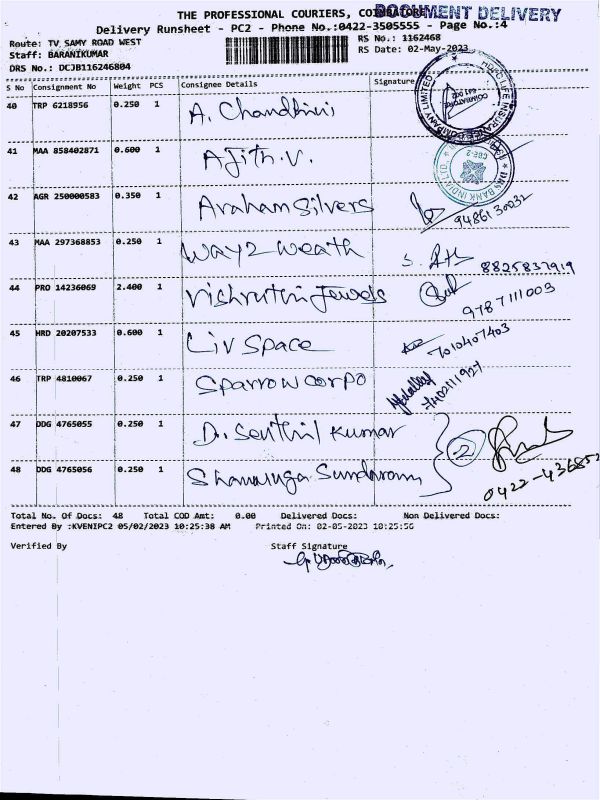 THE PROFESSIONAL COURIERS, COIMBATORE
DOCUMENT DELIVERY
Delivery Runsheet - PC2 - Phone No.:0422-3505555 - Page No.:4
Route: TV SAMY ROAD WEST
RS No.: 1162468
Staff: BARANIKUMAR
RS Date: 02-May-2023
DRS No.: DCJB116246804
S No Consignment No Weight PCS Consignee Details Signature
40 TRP 6218956 0.250 1 A. Chandhini
HDFC LIFE INSURANCE COMPANY LIMITED
COIMBATORE
641 002
41 MAA 858402871 0.600 1 Ajith.V.
DBS BANK INDIA LTD.
CBE-2
42 AGR 250000583 0.350 1 Araham Silvers 9486130032
43 MAA 297368853 0.250 1 Way2 Weath 8825837919
44 PRO 14236069 2.400 1 Vishruthi Jewels 9787111003
45 HRD 20207533 0.600 1 Liv Space 7010407403
46 TRP 4810067 0.250 1 Sparrow corpo 7402111927
47 DDG 4765055 0.250 1 D. Senthil Kumar
2
48 DDG 4765056 0.250 1 Shanmuga Sundaram 0422-436852
Total No. Of Docs: 48 Total COD Amt: 0.00 Delivered Docs: Non Delivered Docs:
Entered By :KVENIPC2 05/02/2023 10:25:38 AM Printed On: 02-05-2023 10:25:56
Verified By Staff Signature